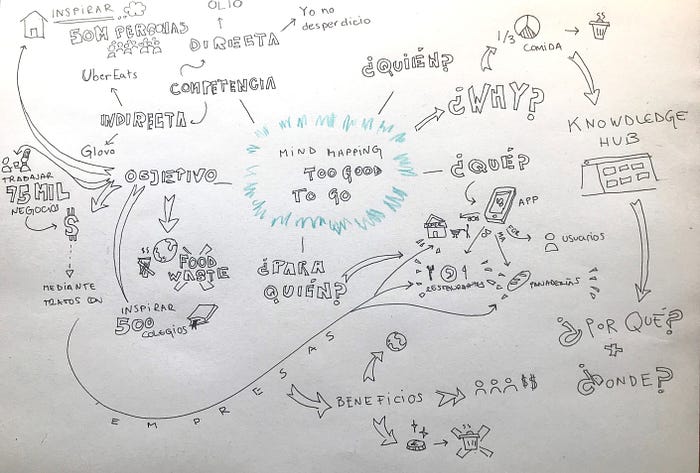 INSPIRAR
50M PERSONAS
OLIO
Yo no
desperdicio
DIRECTA
UberEats
COMPETENCIA
INDIRECTA
Glovo
¿QUIÉN?
¿WHY?
1/3
COMIDA
KNOWLEDGE
HUB
MIND MAPPING
TOO GOOD
TO GO
¿QUÉ?
APP
USUARIOS
TRABAJAR
75 MIL
NEGOCIOS
$
OBJETIVO
FOOD
WASTE
MEDIANTE
TRATOS CON
INSPIRAR
500
COLEGIOS
¿PARA
QUIÉN?
RESTAURANTES
PANADERÍAS
¿POR QUÉ?
+
¿DONDE?
EMPRESAS
BENEFICIOS
$$